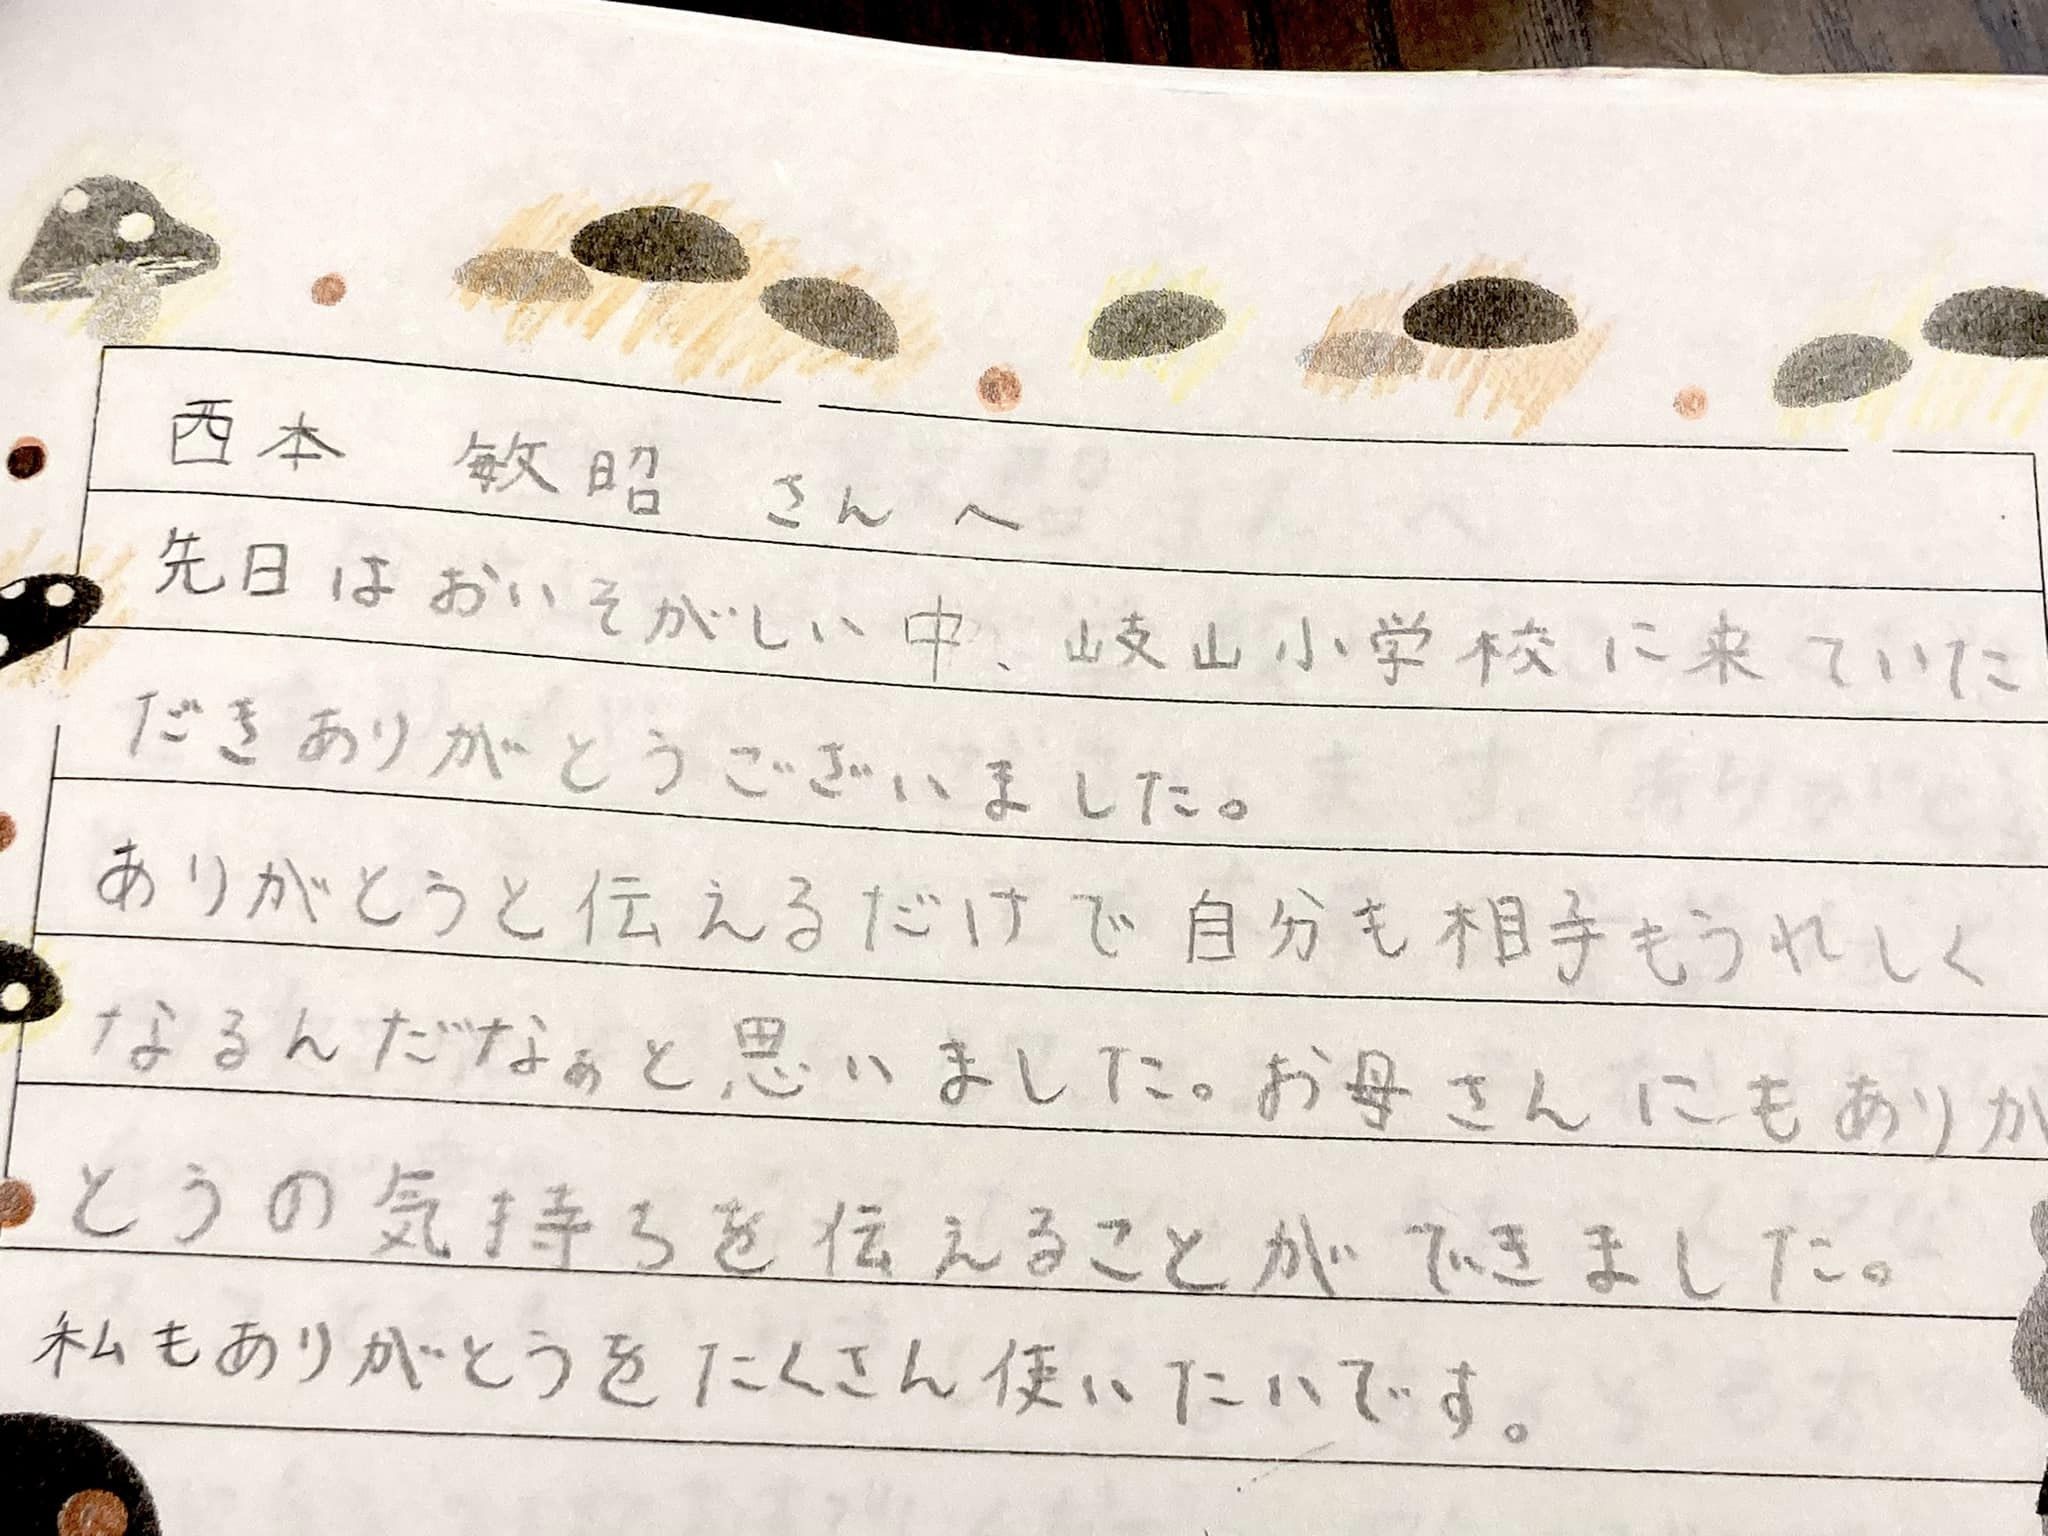 西本 敏昭 さんへ
先日はおいそがしい中、岐山小学校に来ていた
だきありがとうございました。
ありがとうと伝えるだけで自分も相手もうれしく
なるんだなぁと思いました。お母さんにもありが
とうの気持ちを伝えることができました。
私もありがとうをたくさん使いたいです。